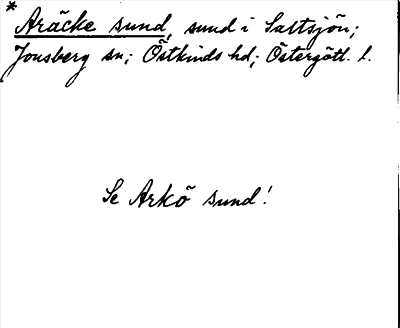 * Aräcke sund, sund i Saltsjön;
Jonsberg sn; Östkinds hd; Östergötl. l.
Se Arkö sund!